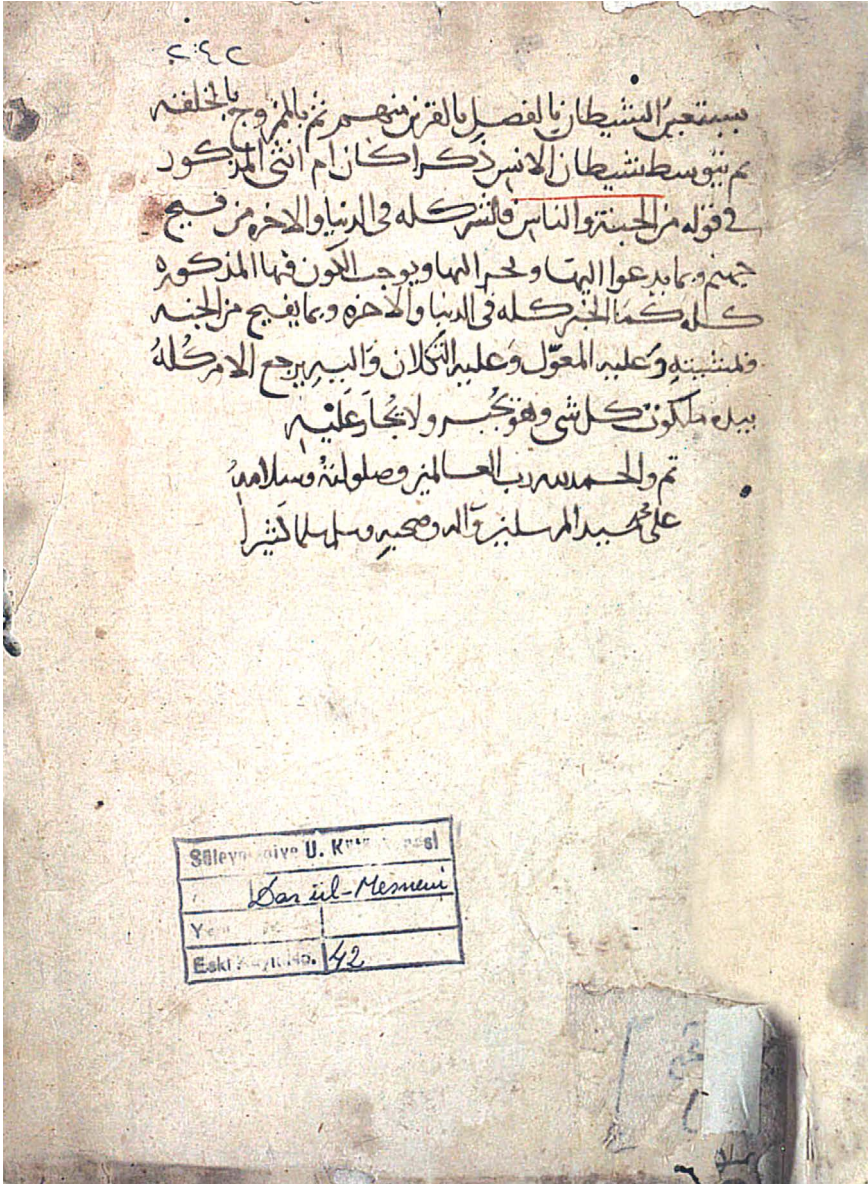 ٢٤٢
الشيطان بالفصل بالقرين منهم ثم بالمزوج بالخلقه
ثم بتوسط شيطان الانس ذكرا كان ام انثى المذكور
في قوله من الجنة والناس فالشر كله في الدنيا والاخره من فيح
جهنم وبما يدعوا اليها ويجر اليها ويوجب الكون فيها المذكوره
كله كما الخير كله في الدنيا والاخره وبما يفيح من الجنه
وعليه المعوّل وعليه التكلان واليه يرجع الامر كله
بيده ملكوت كل شى وهو يجير ولا يجار عليه
تم والحمد لله رب العالمين وصلواته وسلامه
على محمد سيد المرسلين واله وصحبه وسلم تسليما كثيرا
Süleymaniye U. Kütüphanesi
Dar ül-Mesnevi
Eski Kayıt No. 42